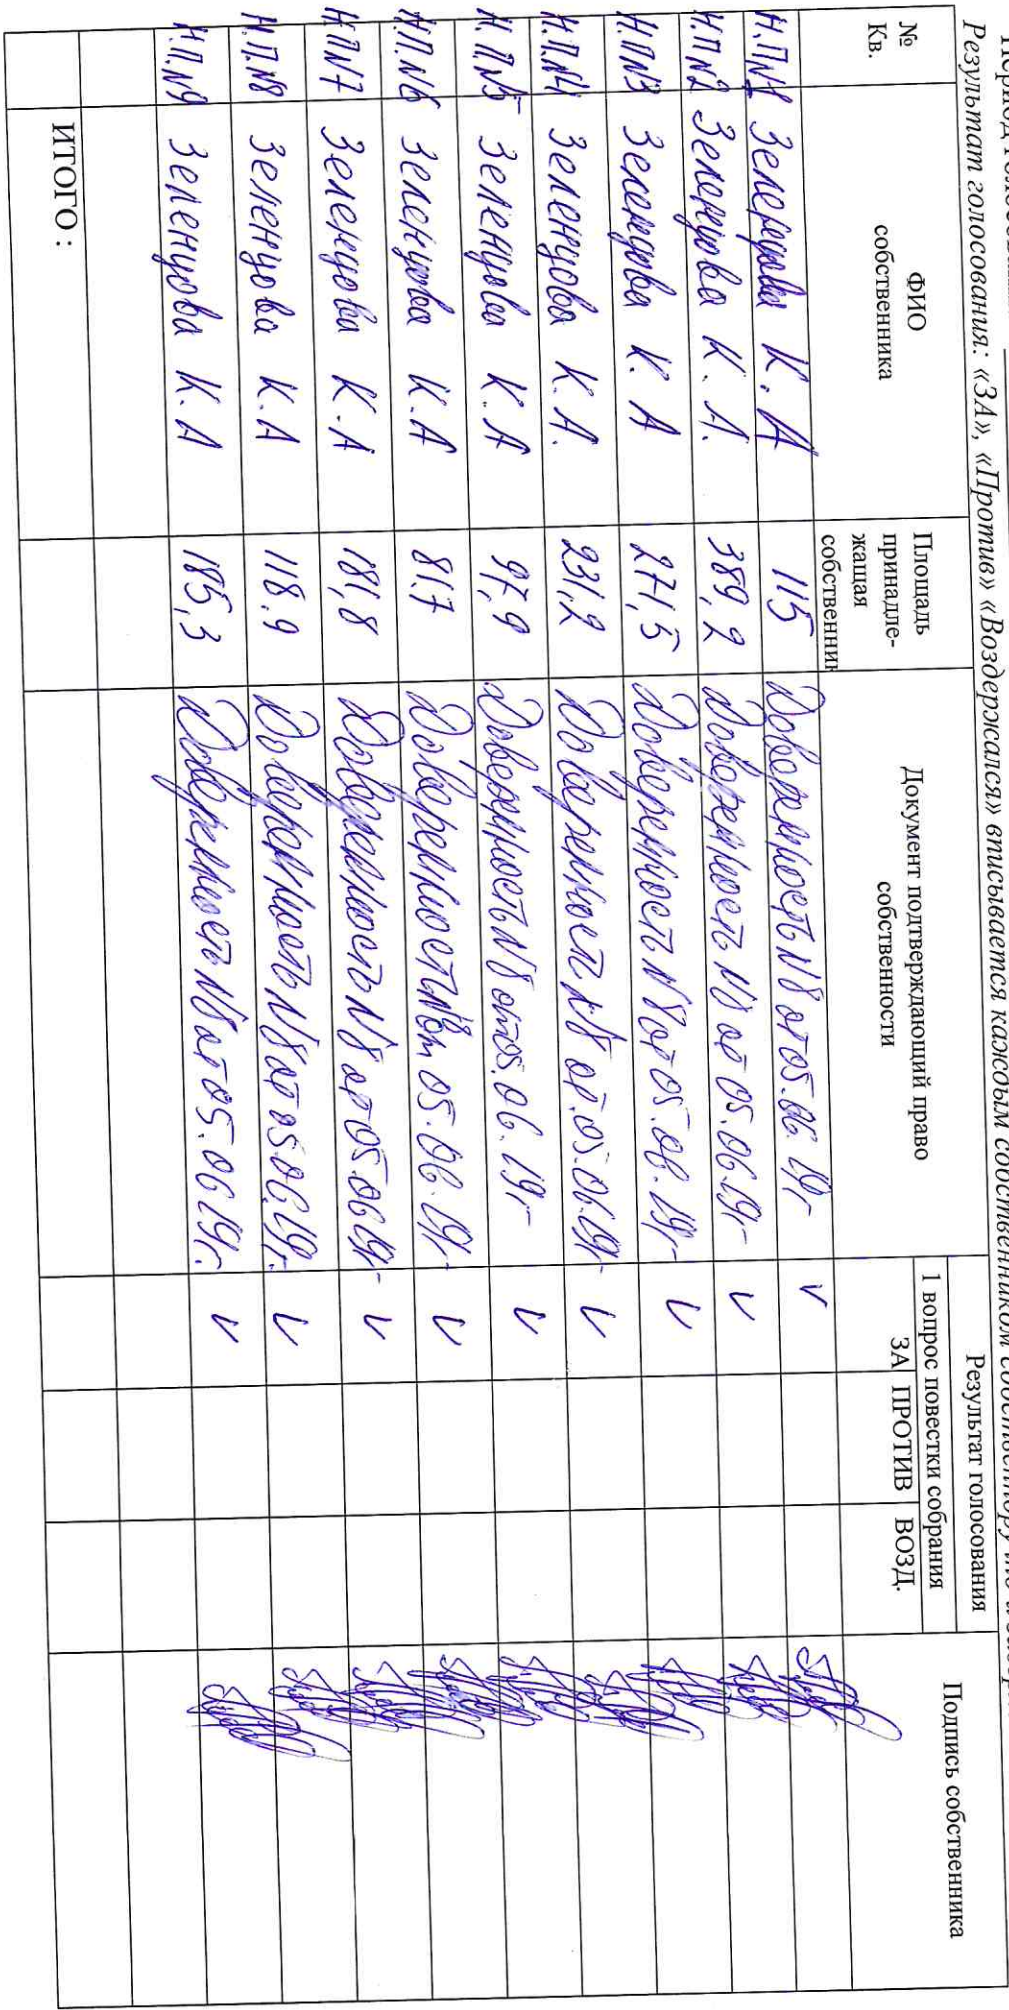 Результат голосования: «ЗА», «Против» «Воздержался» вписывается каждым собственником
№ Кв. ФИО собственника Площадь принадле-жащая собственник Документ подтверждающий право собственности Результат голосования Подпись собственника
1 вопрос повестки собрания
ЗА ПРОТИВ ВОЗД.
Н.П.N1 Зеленцова К.А 115 Доверенность N8 от 05.06.19г V
Н.П.N2 Зеленцова К.А. 389,2 Доверенность N8 от 05.06.19г V
Н.П.N3 Зеленцова К.А 271,5 Доверенность N8 от 05.06.19г V
Н.П.N4 Зеленцова К.А. 231,2 Доверенность N8 от 05.06.19г V
Н.П.N5 Зеленцова К.А 97,9 Доверенность N8 от 05.06.19г V
Н.П.N6 Зеленцова К.А 81,7 Доверенность N8 от 05.06.19г V
Н.П.N7 Зеленцова К.А 181,8 Доверенность N8 от 05.06.19г V
Н.П.N8 Зеленцова К.А 118,9 Доверенность N8 от 05.06.19г. V
Н.П.N9 Зеленцова К.А 185,3 Доверенность N8 от 05.06.19г. V
ИТОГО :